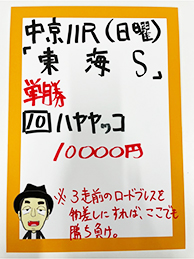 中京11R(日曜)
「東海S」
単勝
10 ハヤヤッコ
10000円
※3走前のロードブレスを
物差しにすれば、ここでも
勝ち負け。